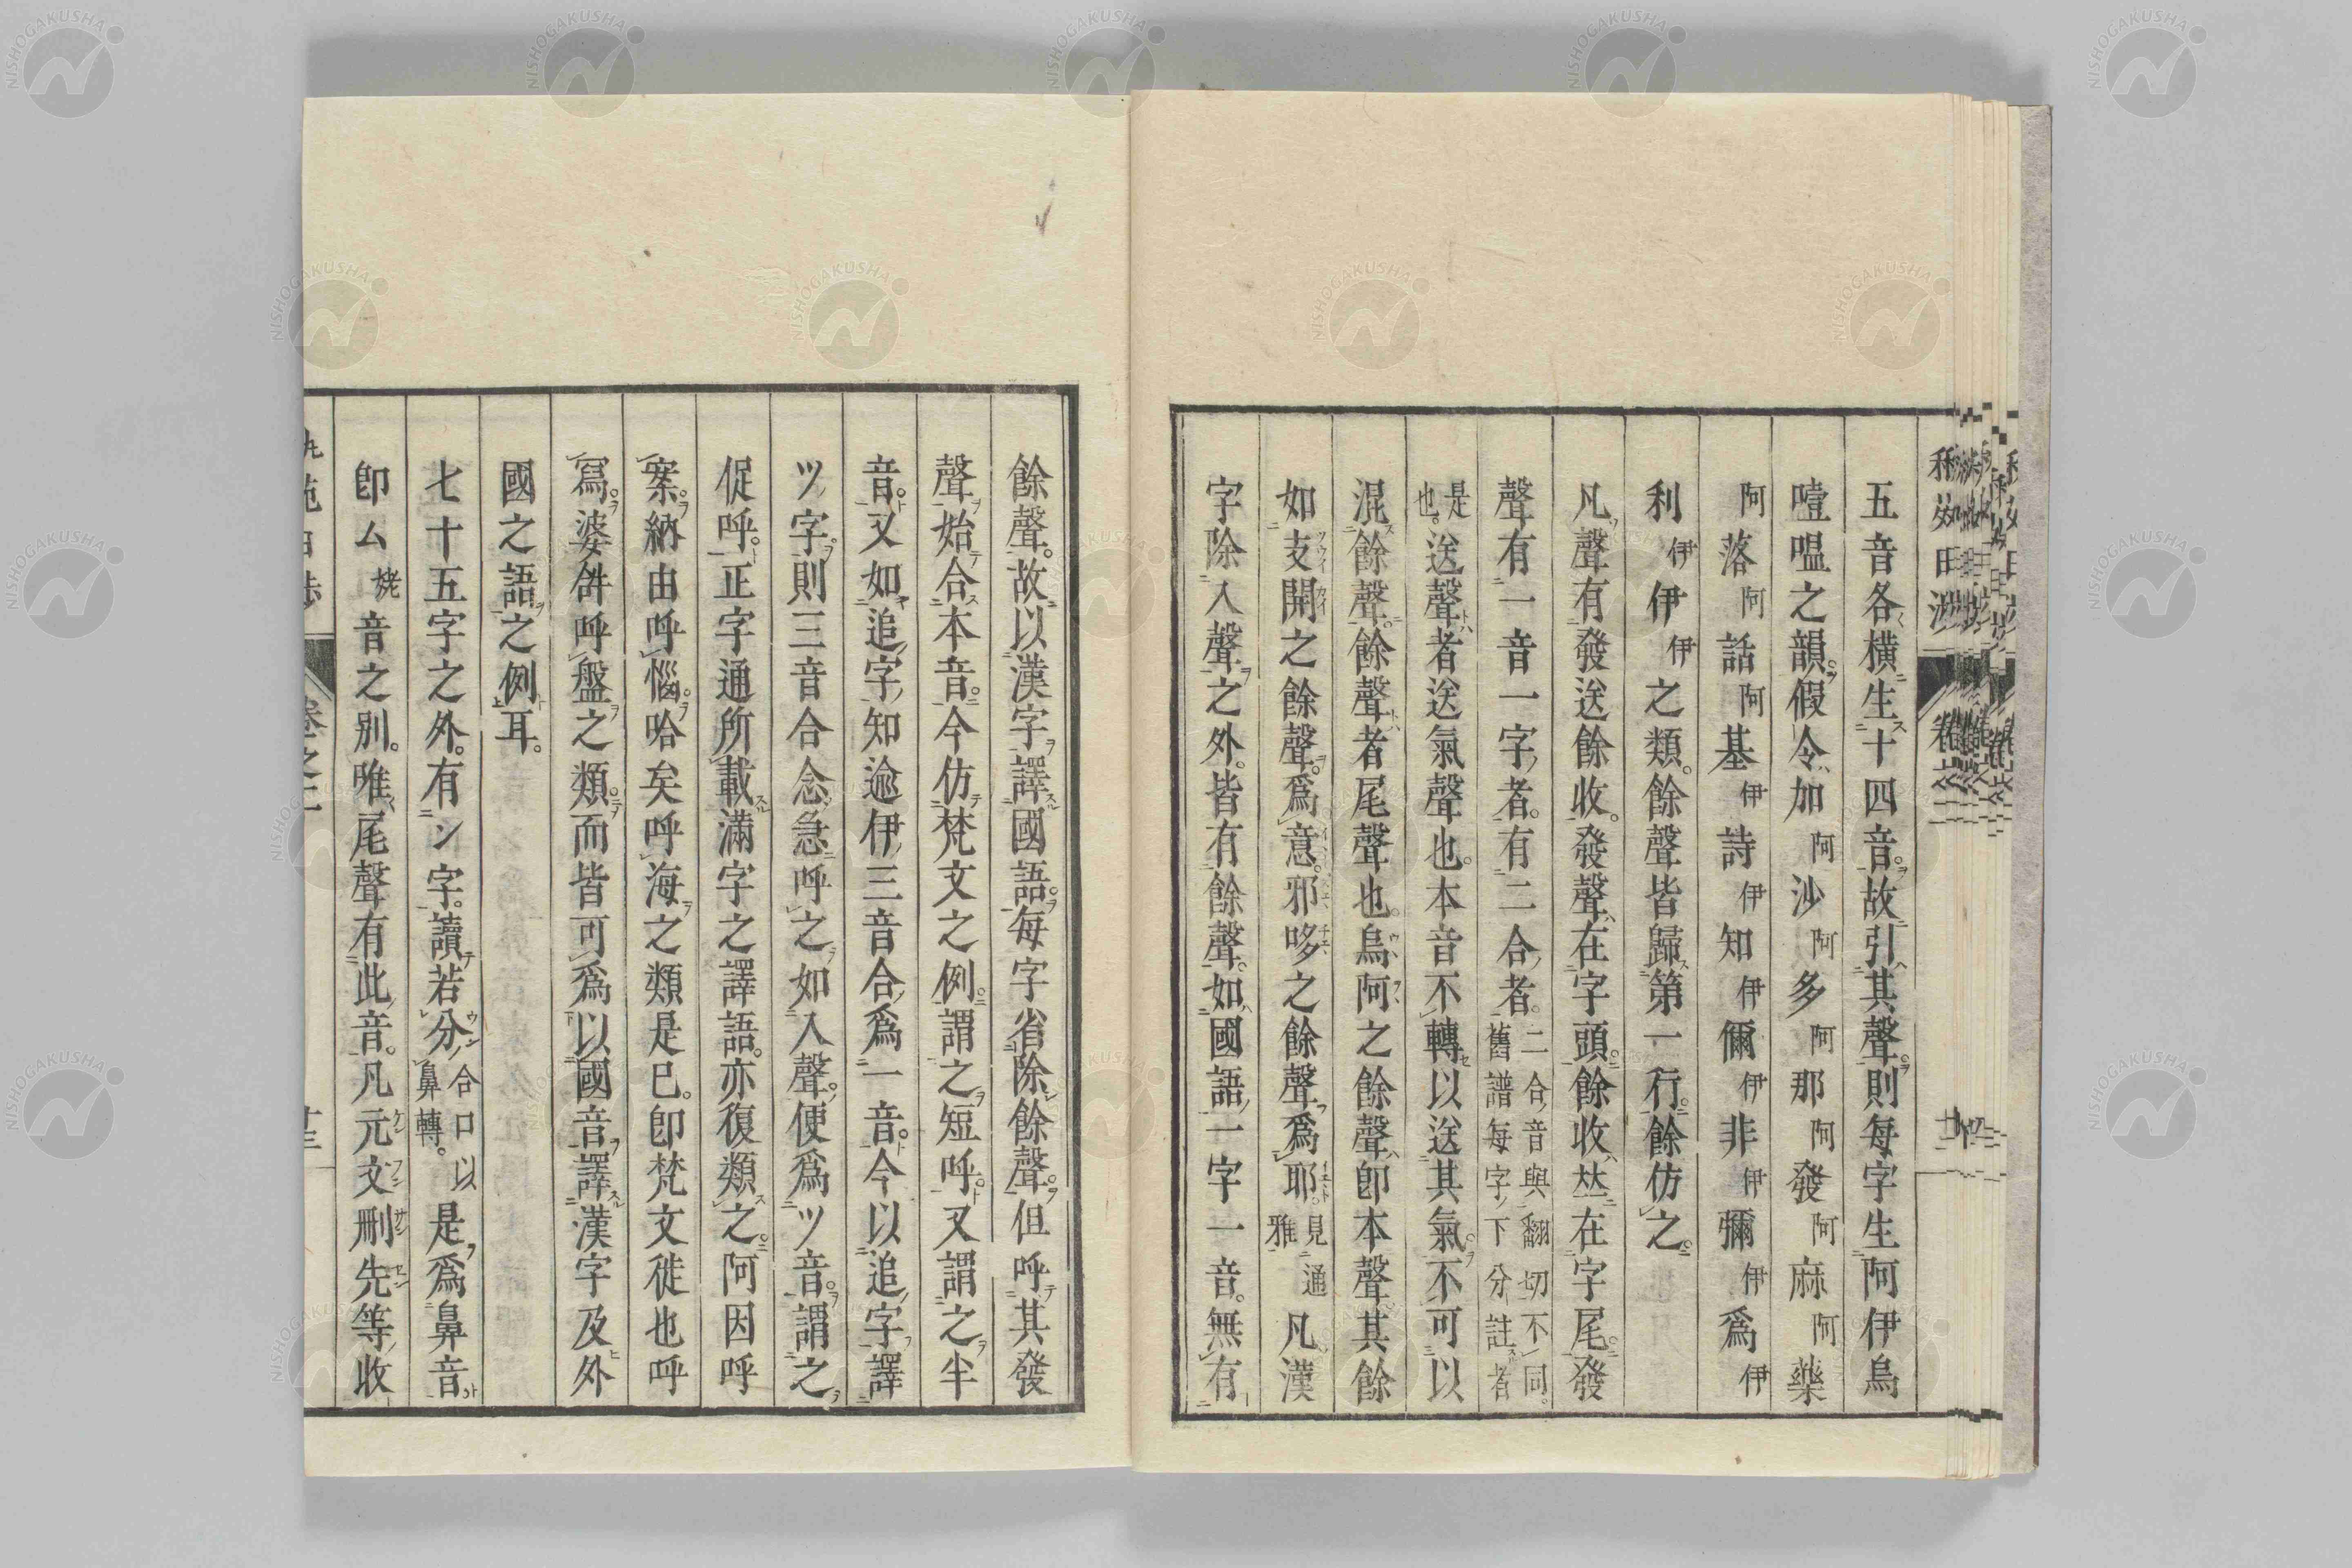 五音各横生十四音。故引其聲。則毎字生阿伊烏
噎嗢之韻。假令加阿沙阿多阿那阿發阿麻阿藥
阿落阿話阿基伊詩伊知伊爾伊非伊彌伊爲伊
利伊伊伊之類。餘聲皆歸第一行。餘仿之。
凡聲有發送餘收。發聲在字頭。餘收𠀤在字尾。發
聲有一音一字者。有二合者。二合音與翻切不同。舊譜毎字下分註者
是也。送聲者送氣聲也。本音不轉以送其氣。不可以
混餘聲。餘聲者尾聲也。烏阿之餘聲即本聲其餘
如支開之餘聲。爲意。邪哆之餘聲爲耶。見通雅凡漢
字除入聲之外。皆有餘聲。如國語一字一音。無有
餘聲。故以漢字譯國語。毎字省除餘聲。但呼其發
聲始合本音。今仿梵文之例。謂之短呼。又謂之半
音。又如追字知逾伊三音合爲一音。今以追字譯
ツ字。則三音合念急呼之如入聲。便爲ツ音。謂之
促呼。正字通所載滿字之譯語。亦復類之。阿因呼
案。納由呼惱。哈矣呼海之類是已。即梵文徙也呼
寫。婆侔呼盤之類。而皆可爲以國音譯漢字及外
國之語之例耳。
七十五字之外。有ン字。讀若分合口以鼻轉。是爲鼻音
即ム㛐音之別。唯尾聲有此音。凡元文刪先等收
NISHOGAKUSHA